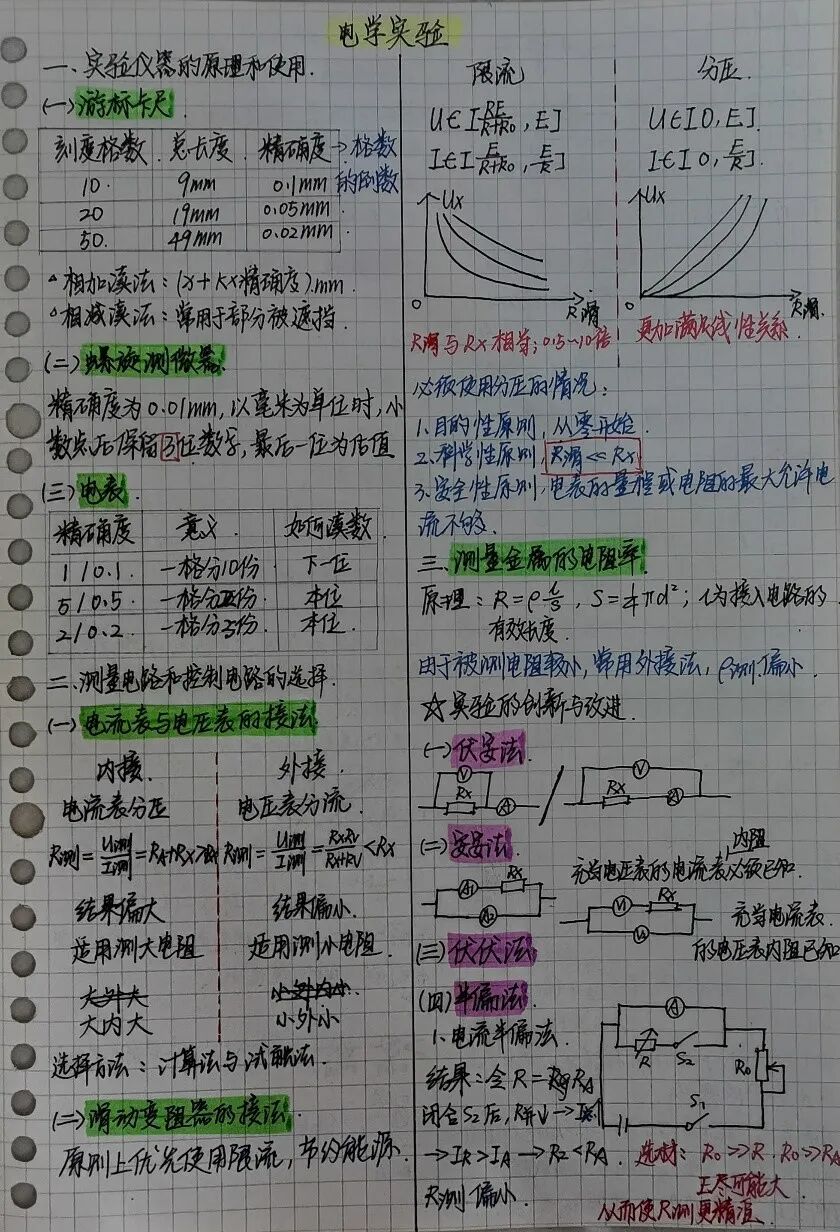 电学实验
一、实验仪器的原理和使用.
(一)游标卡尺
刻度格数 总长度 精确度→格数
的倒数
10. 9mm 0.1mm
20 19mm 0.05mm
50. 49mm 0.02mm
相加读法:(x+k×精确度)mm.
相减读法:常用于部分被遮挡.
(二)螺旋测微器.
精确度为0.01mm,以毫米为单位时,小
数点后保留3位数字,最后一位为估值
(三)电表.
精确度 意义. 如何读数
1/0.1. 一格分10份 下一位
5/0.5 一格分2份 本位
2/0.2 一格分5份 本位.
二、测量电路和控制电路的选择.
(一)电流表与电压表的接法
内接. 外接.
电流表分压 电压表分流.
R测=U测/I测=RA+Rx>Rx R测=U测/I测=RxRV/(Rx+RV)<Rx
结果偏大 结果偏小.
适用测大电阻 适用测小电阻.
大内大 小外小
选择方法:计算法与试触法.
(二)滑动变阻器的接法.
原则上优先使用限流,节约能源.
限流 分压.
U∈[RE/(R+R0),E] U∈[0,E].
I∈[E/(R+R0),E/R] I∈[0,E/R].
Ux Ux
O R滑 O R滑.
R滑与Rx相等;0.5~10倍 更加满足线性关系.
必须使用分压的情况:
1.目的性原则,从零开始.
2.科学性原则,R滑≪Rx
3.安全性原则,电表的量程或电阻的最大允许电
流不够.
三、测量金属的电阻率.
原理:R=ρl/S,S=1/4πd²;l为接入电路的
有效长度.
由于被测电阻较小,常用外接法,ρ测偏小.
☆实验的创新与改进.
(一)伏安法.
V V
Rx A Rx A
(二)安安法.
内阻
充当电压表的电流表必须已知.
A1 Rx
A2
V1 Rx
充当电流表
的电压表内阻已知
(三)伏伏法
(四)半偏法.
1、电流半偏法.
A
R S2 R0
S1
结果:令R=RA
闭合S2后,R并↓→I↑
→IR>IA→R2<RA. 选材:R0≫R,R0≫RA
E尽可能大
R测偏小. 从而使R测更精准.